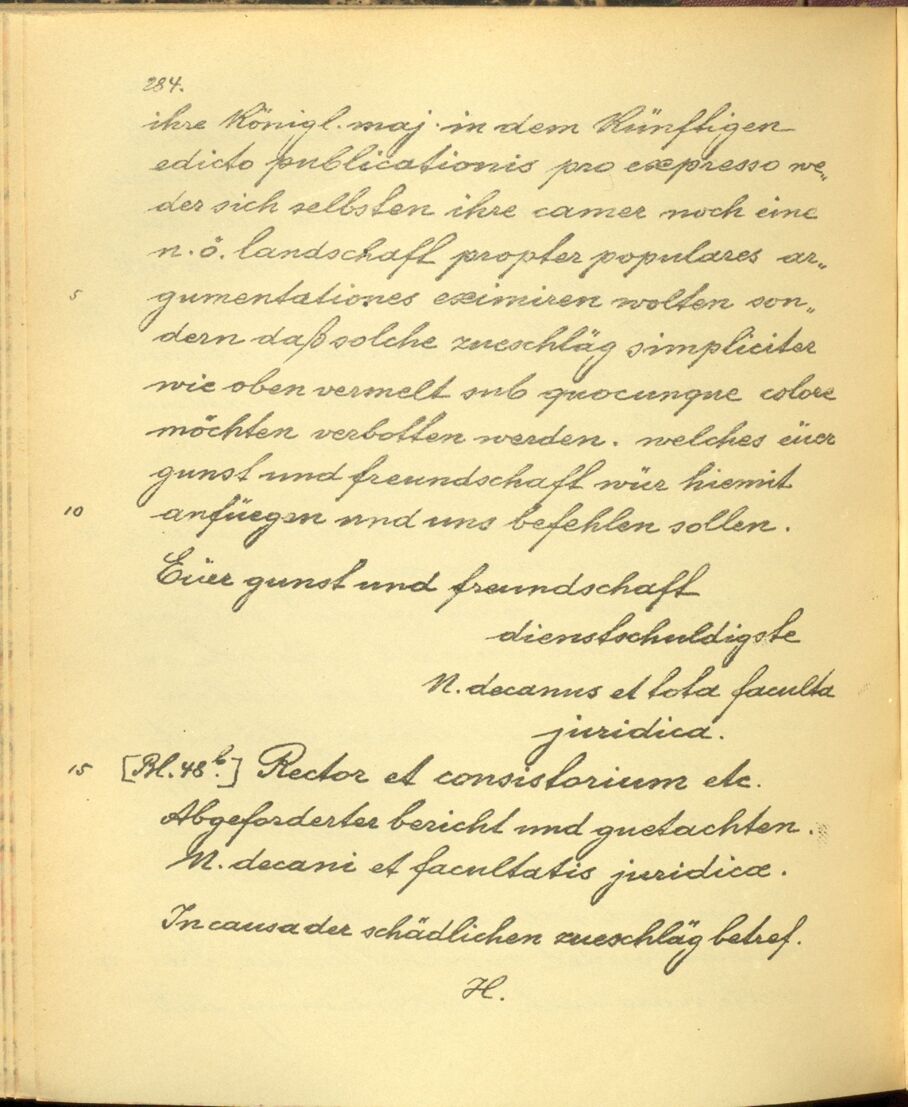 284.
ihre Königl. maj. in dem Künftigen
edicto publicationis pro expresso we„
der sich selbsten ihre camer noch eine
n. ö. landschaft propter populares ar„
5 gumentationes eximiren wolten son„
dern daß solche zueschläg simpliciter
wie oben vermelt sub quocunque colore
möchten verbotten werden. welches eüer
gunst und freundschaft wür hiemit
10 anfüegen und uns befehlen sollen.
Eüer gunst und freundschaft
dienstschuldigste
N. decanus et tota faculta
juridica.
15 [Bl. 48b.] Rector et consistorium etc.
Abgeforderter bericht und guetachten.
N. decani et facultatis juridicæ.
In causa der schädlichen zueschläg betref.
H.